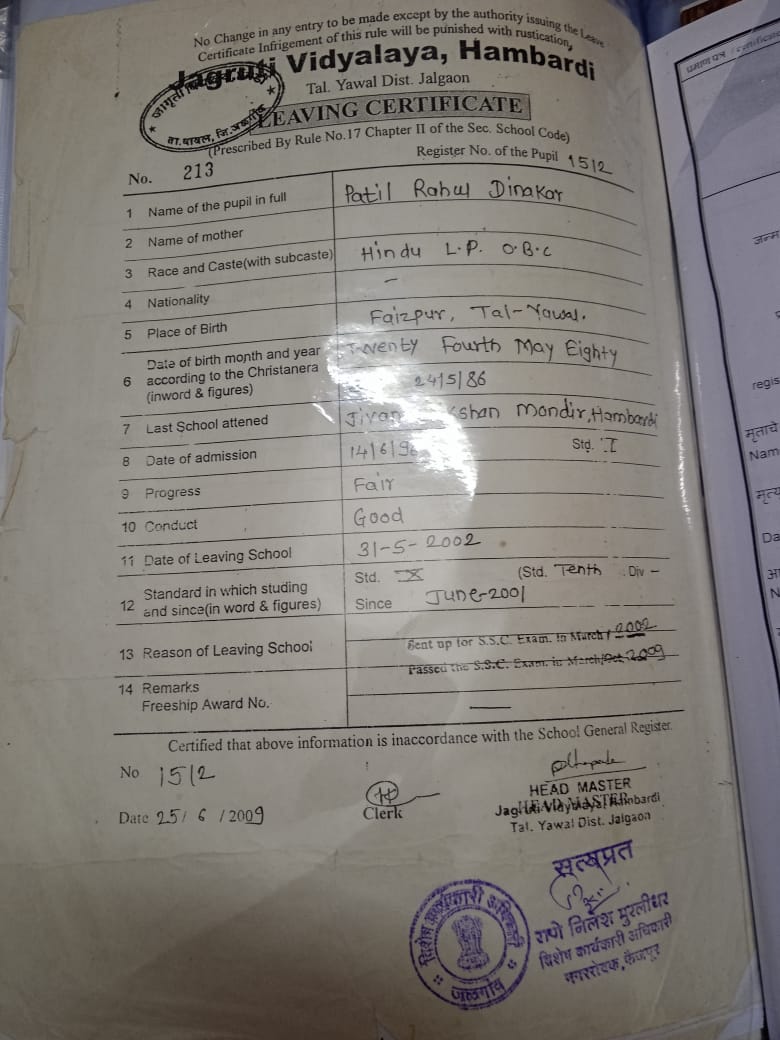 No Change in any entry to be made except by the authority issuing the Leave
Certificate Infrigement of this rule will be punished with rustication,
Jagruti Vidyalaya, Hambardi
Tal. Yawal Dist. Jalgaon
LEAVING CERTIFICATE
(Prescribed By Rule No.17 Chapter II of the Sec. School Code)
No. 213 Register No. of the Pupil 1512
1 Name of the pupil in full Patil Rahul Dinakar
2 Name of mother
3 Race and Caste(with subcaste) Hindu L.P. O.B.C
4 Nationality –
5 Place of Birth Faizpur, Tal-Yawal.
6 Date of birth month and year
according to the Christanera
(inword & figures)
Twenty Fourth May Eighty
24/5/86
7 Last School attened Jivan Mandir, Hambardi
8 Date of admission 14/6/96 Std. I
9 Progress Fair
10 Conduct Good
11 Date of Leaving School 31-5-2002
12 Standard in which studing
and since(in word & figures)
Std. (Std. Tenth : Div –
Since June-2001
13 Reason of Leaving School
Sent up for S.S.C. Exam. in March / 2002
Passed the S.S.C. Exam. in March/Oct 2009
14 Remarks
Freeship Award No. —
Certified that above information is inaccordance with the School General Register.
No 1512
Date 25/ 6 / 2009
Clerk
HEAD MASTER
HEAD MASTER
Jagruti Vidyalaya Hambardi
Tal. Yawal Dist. Jalgaon
सत्यप्रत
राणे निलेश मुरलीधर
विशेष कार्यकारी अधिकारी
फैजपूर
विशेष कार्यकारी अधिकारी
जळगांव
प्रमाणपत्र / certificate
जन्म
regis
मृताचे
Nam
मृत्य
Da